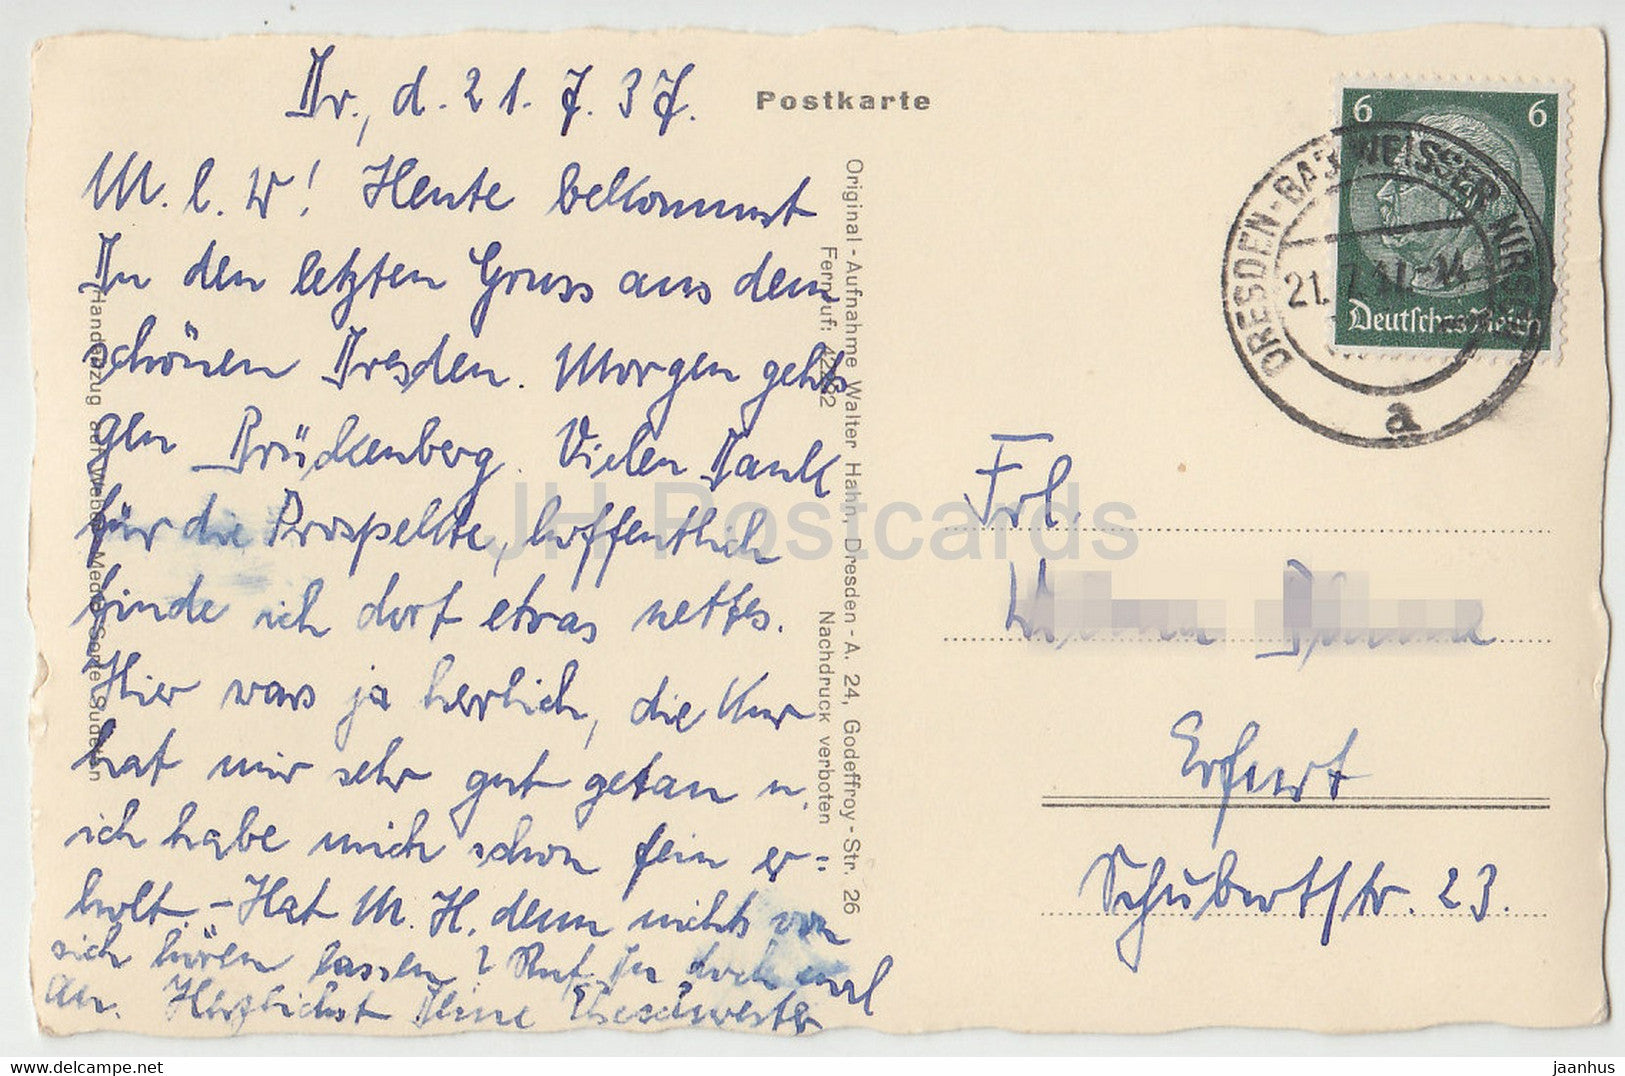 Dr., d. 21.7.37.
Postkarte
M. l. W! Heute bekommst
Du den letzten Gruss aus dem
schönen Dresden. Morgen gehts
gen Brückenberg. Vielen Dank
für die Prospekte, hoffentlich
finde ich dort etwas nettes.
Hier wars ja herrlich, die Kur
hat mir sehr gut getan u.
ich habe mich schon fein er=
holt. - Hat M. H. denn nichts von
sich hören lassen? Ruf Du doch mal
an. Herzlichst Deine
Original-Aufnahme Walter Hahn, Dresden-A. 24, Godeffroy-Str. 26
Fernruf: 42282 Nachdruck verboten
Handabzug auf Weber
6 6
Deutsches Reich
DRESDEN-BAD WEISSER HIRSCH
21. 7.
a
Frl.
Erfurt
Schubertstr. 23.
JH Postcards
jaanhus
www.delcampe.net